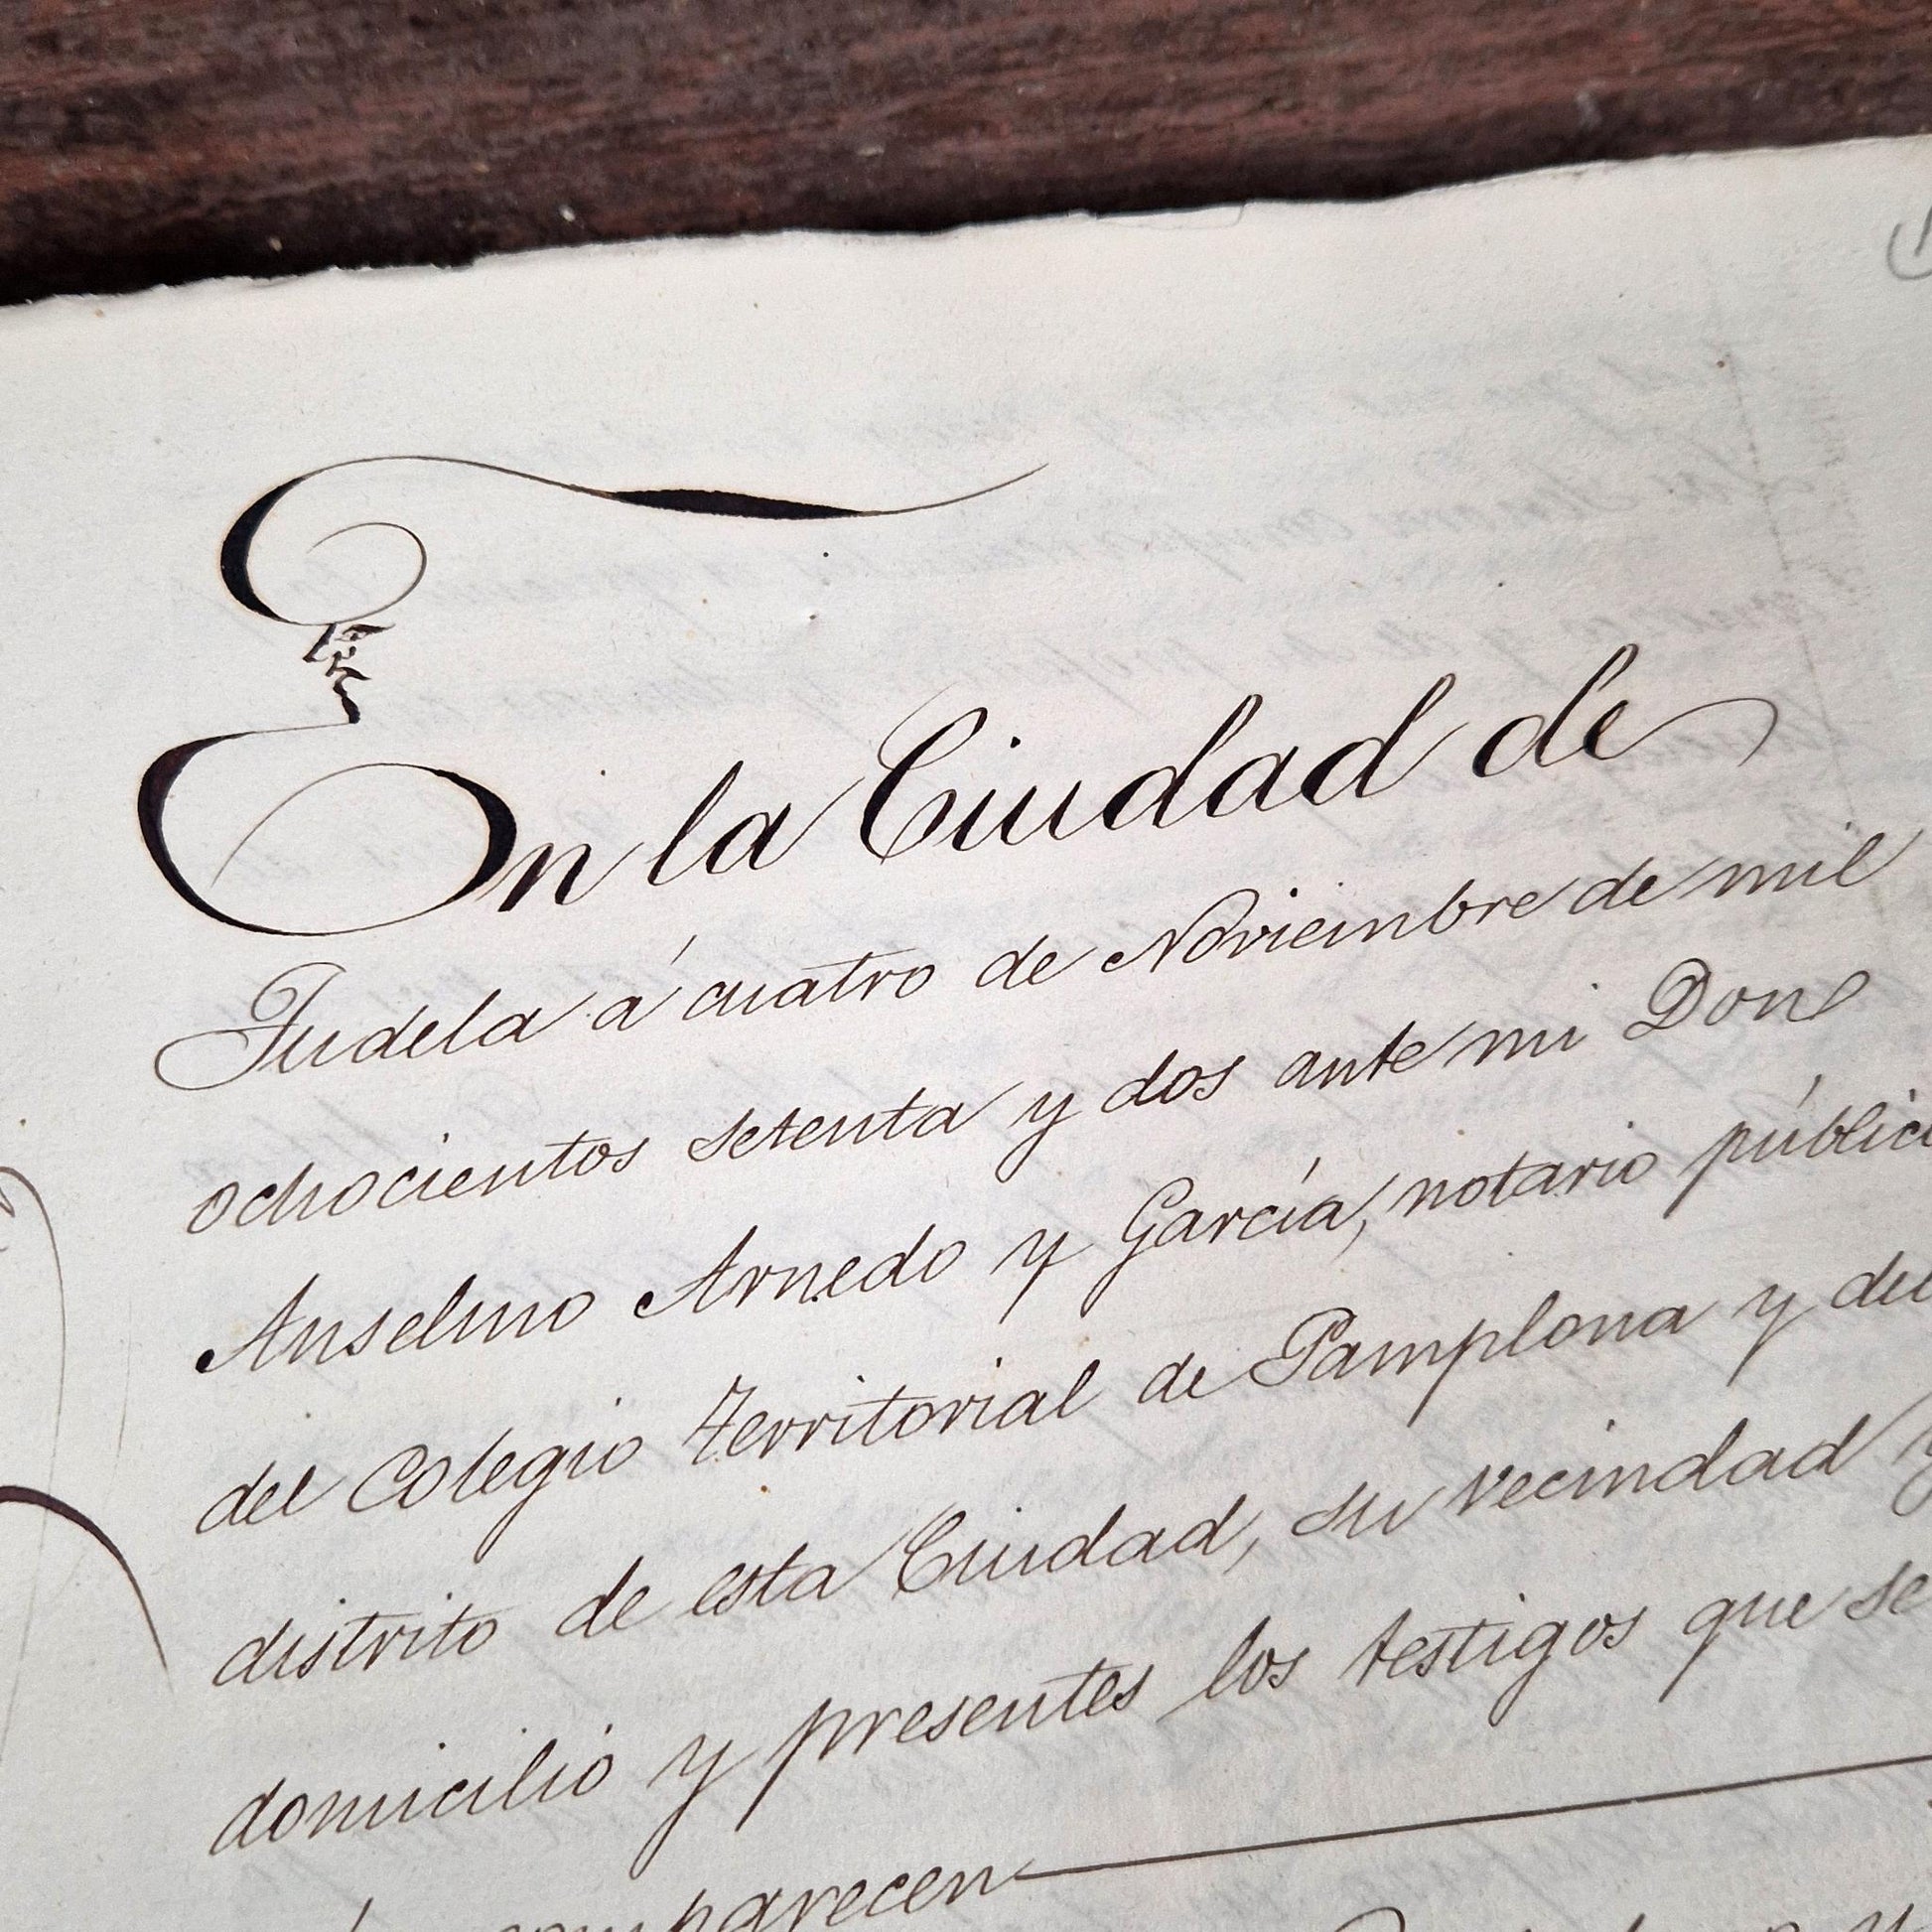 En la Ciudad de
Tudela á cuatro de Noviembre de mil
ochocientos setenta y dos ante mi Don
Anselmo Arnedo y García, notario públic
del Colegio Territorial de Pamplona y del
distrito de esta Ciudad, su vecindad y
domicilio y presentes los testigos que se
comparecen